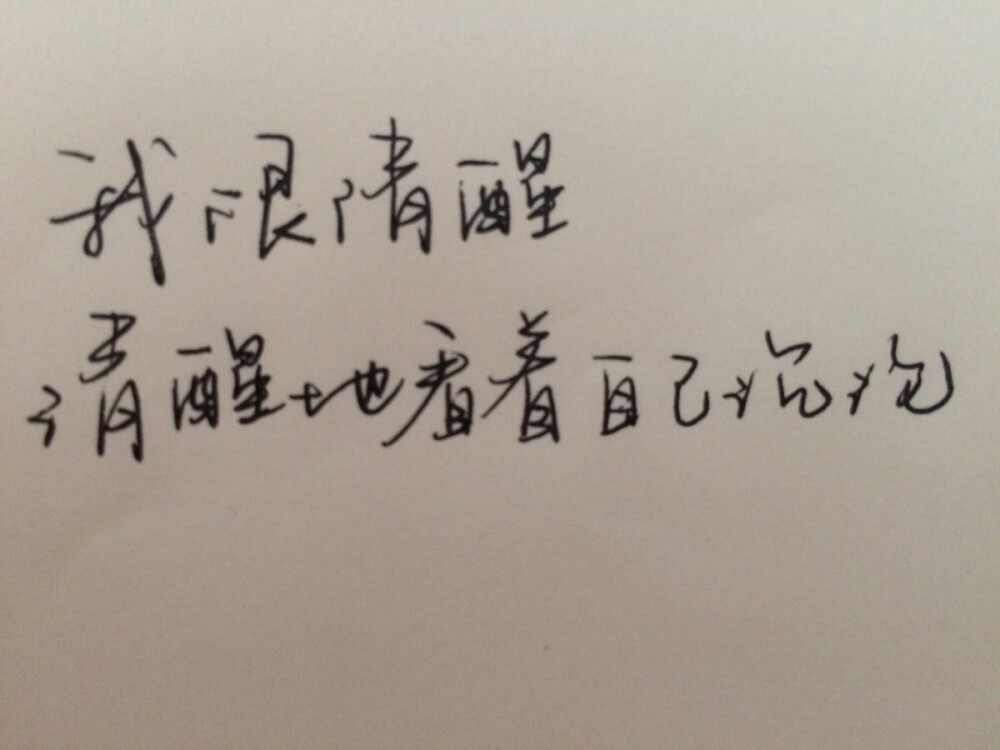 我很清醒
清醒地看着自己沉沦